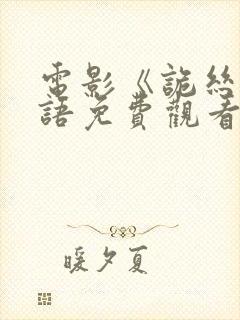 電影《詭絲
語免費觀看
暖夕夏